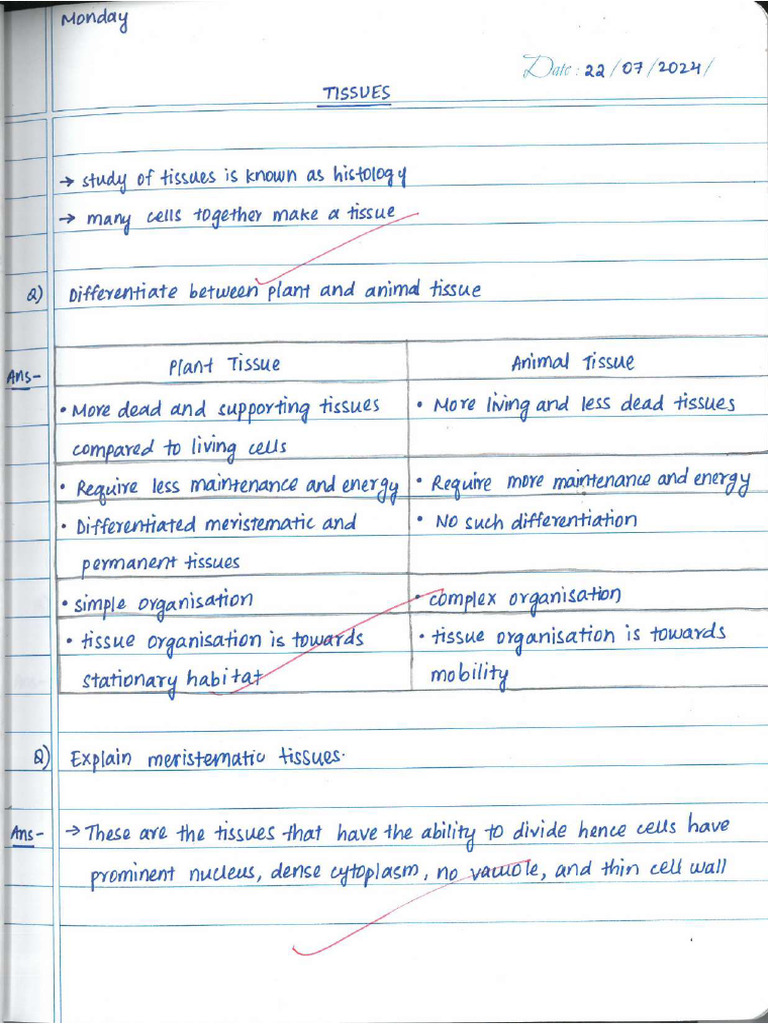 Monday
Date: 22/07/2024/
TISSUES
→ study of tissues is known as histology
→ many cells together make a tissue
Q) Differentiate between plant and animal tissue
Ans-
Plant Tissue | Animal Tissue
• More dead and supporting tissues | • More living and less dead tissues
compared to living cells
• Require less maintenance and energy | • Require more maintenance and energy
• Differentiated meristematic and | • No such differentiation
permanent tissues
• simple organisation | • complex organisation
• tissue organisation is towards | • tissue organisation is towards
stationary habitat | mobility
Q) Explain meristematic tissues.
Ans- → These are the tissues that have the ability to divide hence cells have
prominent nucleus, dense cytoplasm, no vacuole, and thin cell wall